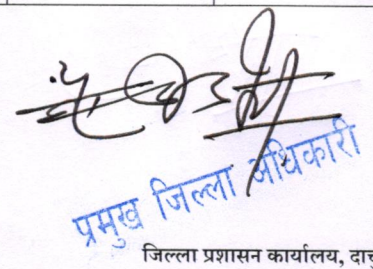 प्रमुख जिल्ला अधिकारी
जिल्ला प्रशासन कार्यालय,